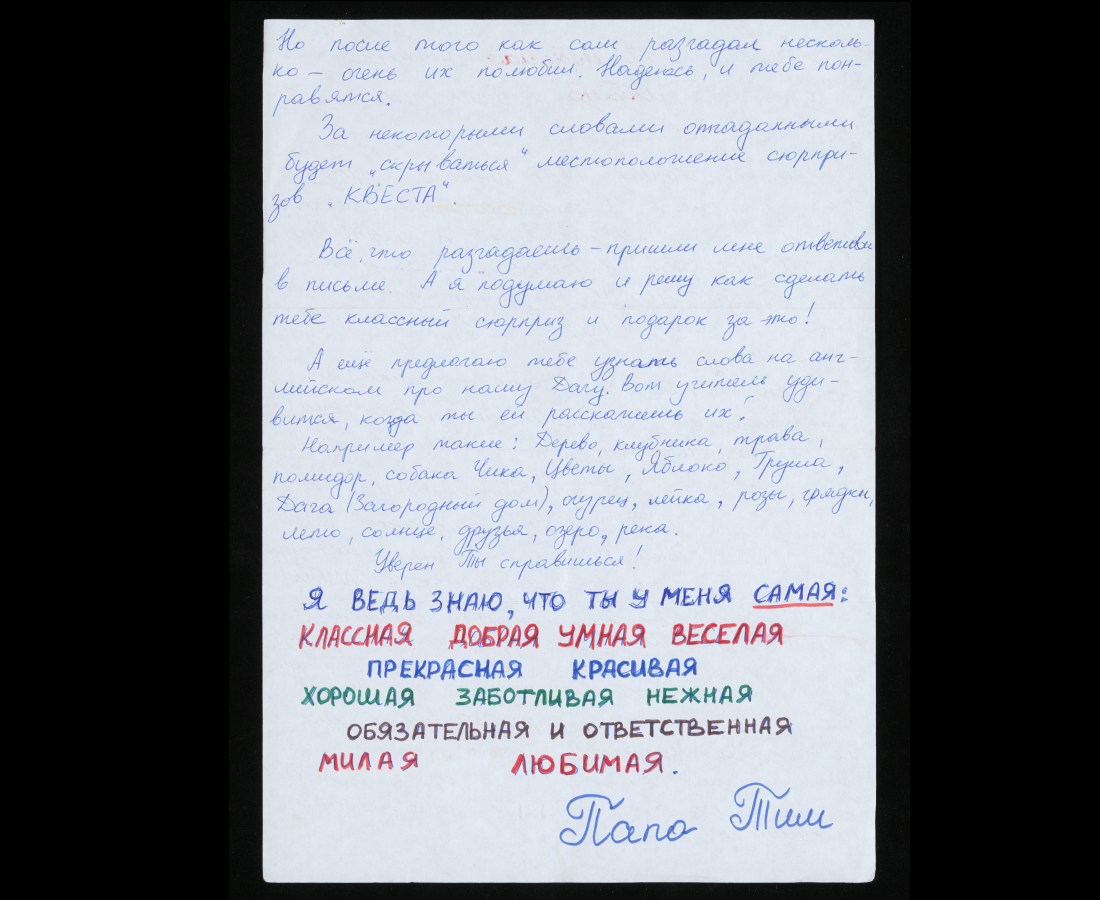 Но после того как сам разгадал несколь-
ко – очень их полюбил. Надеюсь, и тебе пон-
равятся.
За некоторыми словами отгаданными
будет „скрываться“ местоположение сюрпри-
зов „КВЕСТА“.
Всё, что разгадаешь – пришли мне ответы
в письме. А я подумаю и решу как сделать
тебе классный сюрприз и подарок за это!
А ещё предлагаю тебе узнать слова на анг-
лийском про нашу Дачу. Вот учитель уди-
вится, когда ты ей расскажешь их!
Например такие: Дерево, клубника, трава,
помидор, собака Чика, Цветы, Яблоко, Груша,
Дача (Загородный дом), огурец, лейка, розы, грядки,
лето, солнце, друзья, озеро, река.
Уверен Ты справишься!
Я ВЕДЬ ЗНАЮ, ЧТО ТЫ У МЕНЯ САМАЯ:
КЛАССНАЯ ДОБРАЯ УМНАЯ ВЕСЕЛАЯ
ПРЕКРАСНАЯ КРАСИВАЯ
ХОРОШАЯ ЗАБОТЛИВАЯ НЕЖНАЯ
ОБЯЗАТЕЛЬНАЯ И ОТВЕТСТВЕННАЯ
МИЛАЯ ЛЮБИМАЯ.
Папа Тим